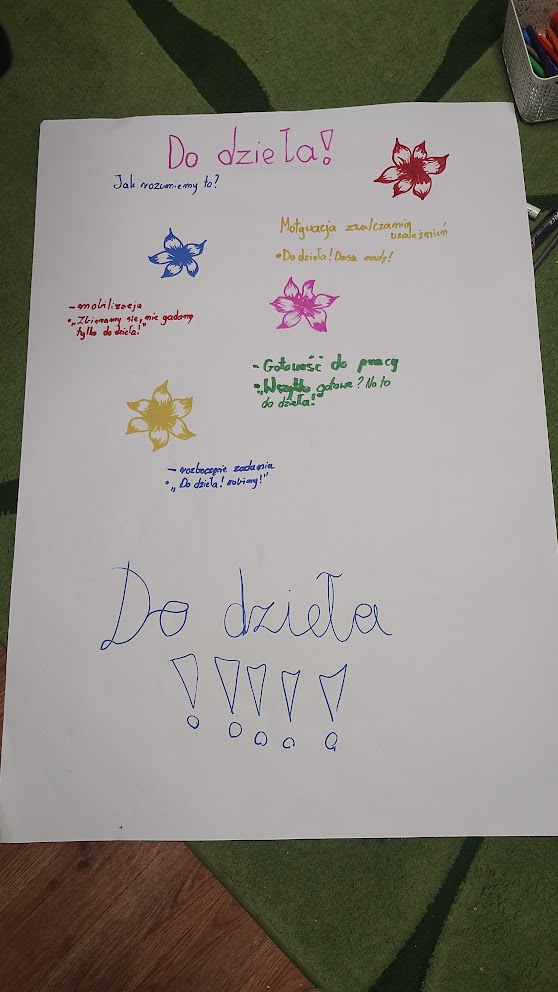 Do dzieła!
Jak rozumiemy to?
Motywacja zwalczamia
uzależnień
• Do dzieła! Dasz radę!
- mobilizacja
• „Zbieramy się, nie gadamy
tylko do dzieła!"
- Gotowość do pracy
• „Wszytko gotowe? No to
do dzieła!"
- rozpoczęcie zadania
• „Do dzieła! robimy!"
Do dzieła
!!!!!